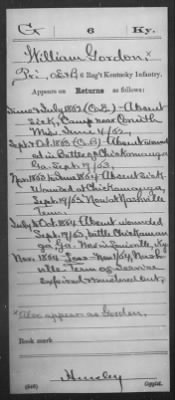 G 6 Ky.
William Gordon,*
Pri, Co. B, 6 Reg't Kentucky Infantry.
Appears on Returns as follows:
June & July 1862 (Co. B.) - Absent
Sick, Camp near Corinth
Miss. June 4/62.
Sept & Oct. 1863 (Co. B) - Absent wound
ed in Battle of Chickamauga
Ga. Sept. 19/63.
Nov. 1863 to June 1864 - Absent Sick.
Wounded at Chickamauga,
Sept. 19/63 Now at Nashville
Tenn.
July & Oct. 1864 Absent wounded
Sept. 19/63, battle Chickamau
ga, Ga. Now in Louisville, Ky
Nov. 1864 Loss - Nov 1/64, Nash
ville - Term of Service
Expired Mustered Out,
*Also appears as
Book mark
(546) Copyist.